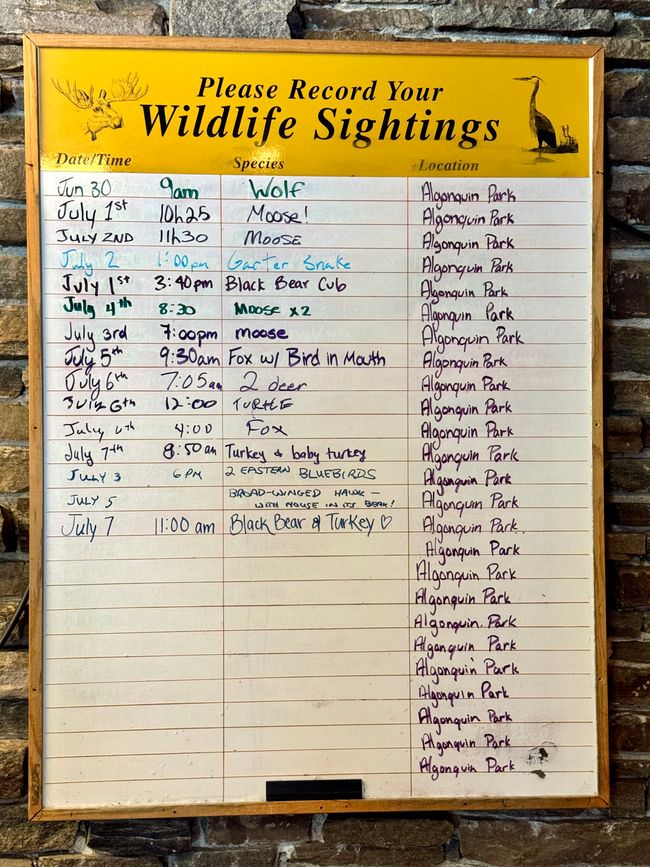 Please Record Your
Wildlife Sightings
Date/Time Species Location
Jun 30 9am Wolf Algonquin Park
July 1st 10h25 Moose! Algonquin Park
JULY 2ND 11h30 MOOSE Algonquin Park
July 2 1:00pm Garter Snake Algonquin Park
July 1st 3:40pm Black Bear Cub Algonquin Park
July 4th 8:30 Moose x2 Algonquin Park
July 3rd 7:00pm moose Algonquin Park
July 5th 9:30am Fox w/ Bird in Mouth Algonquin Park
July 6th 7:05am 2 deer Algonquin Park
JULY 6th 12:00 TURTLE Algonquin Park
July 6th 4:00 Fox Algonquin Park
July 7th 8:50am Turkey & baby turkey Algonquin Park
JULY 3 6PM 2 EASTERN BLUEBIRDS Algonquin Park
JULY 5 BROAD-WINGED HAWK — Algonquin Park
WITH MOUSE IN ITS BEAK!
July 7 11:00 am Black Bear & Turkey ♡ Algonquin Park
Algonquin Park
Algonquin Park
Algonquin Park
Algonquin Park
Algonquin Park
Algonquin Park
Algonquin Park
Algonquin Park
Algonquin Park
Algonquin Park